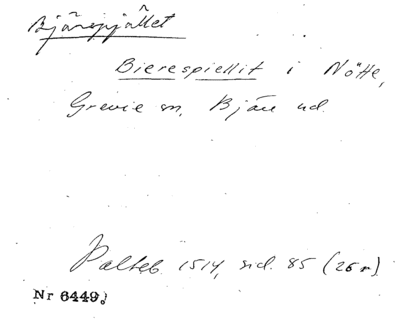 Bjärespjället
Bierespiellit i Nötte,
Grevie sn, Bjäre hd.
Palteb. 1514, sid. 85 (26 r)
Nr 6449.